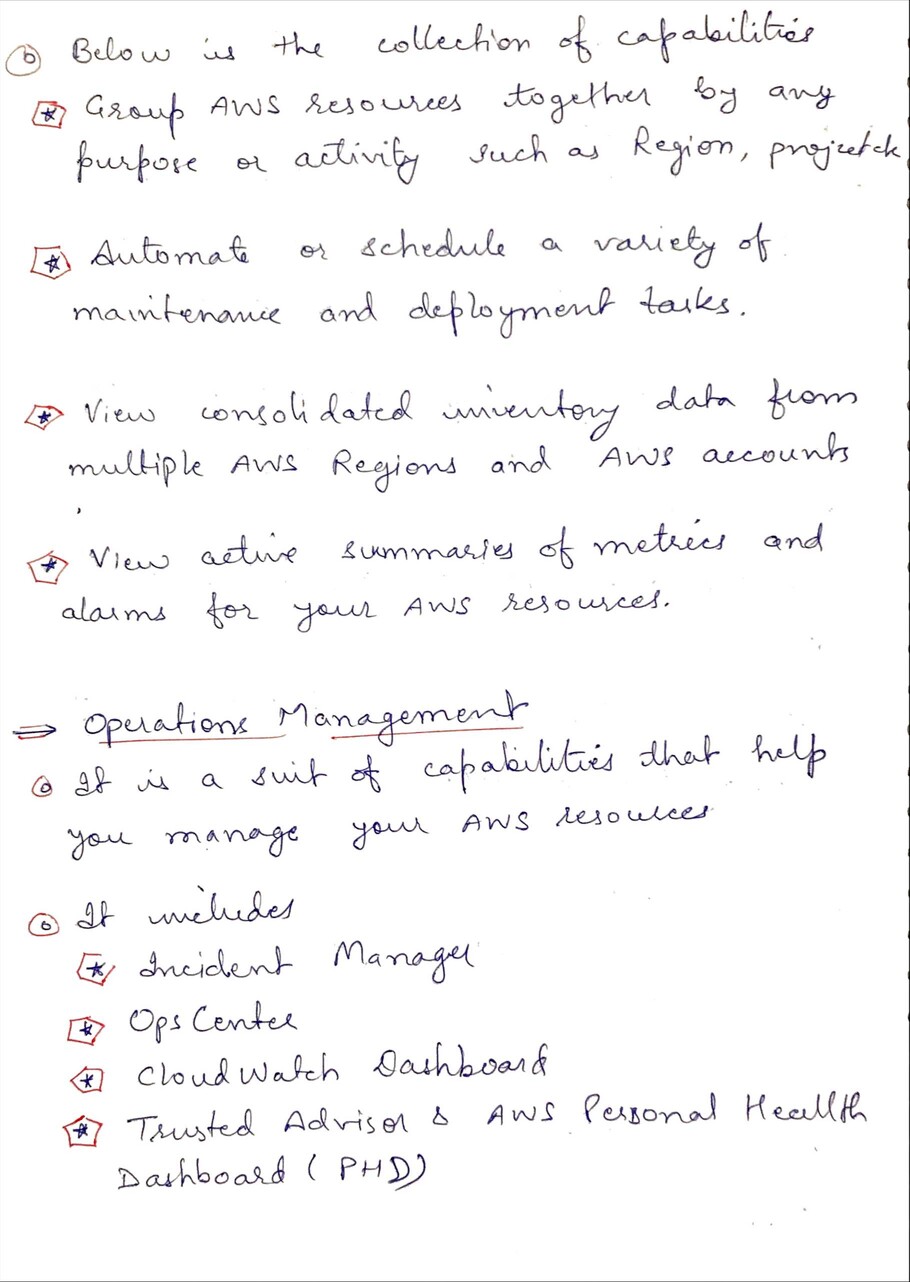 Below is the collection of capabilities
Group AWS resources together by any
purpose or activity such as Region, project etc
Automate or schedule a variety of
maintenance and deployment tasks.
View consolidated inventory data from
multiple AWS Regions and AWS accounts
View active summaries of metrics and
alarms for your AWS resources.
⇒ Operations Management
It is a suit of capabilities that help
you manage your AWS resources
It includes
Incident Manager
OpsCenter
CloudWatch Dashboard
Trusted Advisor & AWS Personal Heallth
Dashboard (PHD)